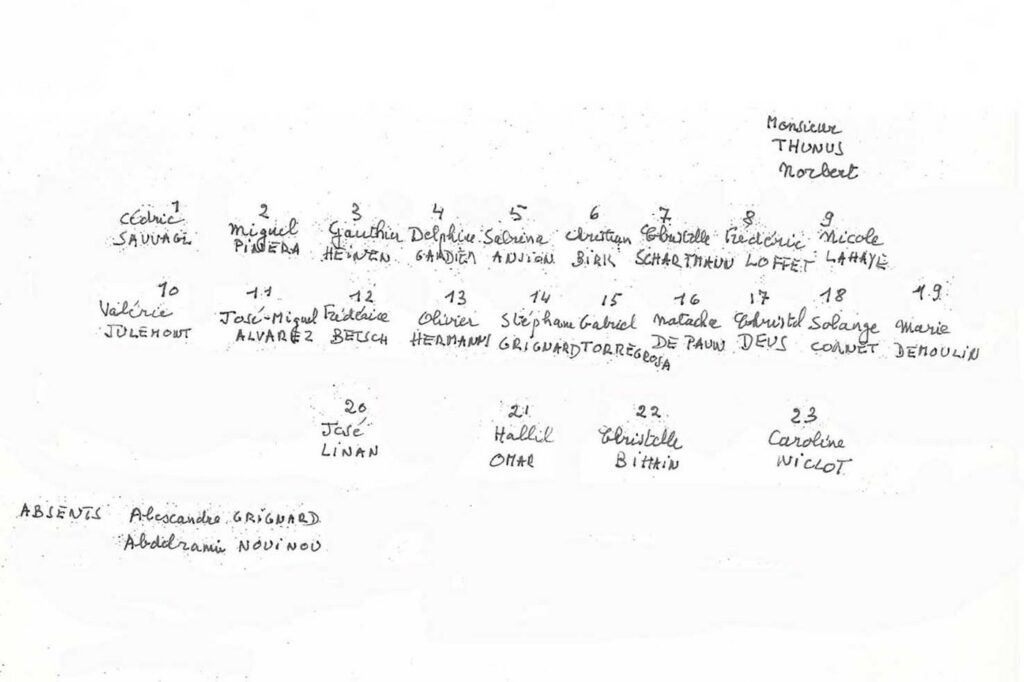 Monsieur
THUNUS
Norbert
1 2 3 4 5 6 7 8 9
Cédric Miguel Gauthier Delphine Sabrina Christian Christelle Frédéric Nicole
SAUVAGE PINERA HEINEN GARDIER ANSION BIRK SCHARTMANN LOFFET LAHAYE
10 11 12 13 14 15 16 17 18 19
Valérie José-Miguel Frédérice Olivier Stéphane Gabriel Natacha Christel Solange Marie
JULEMONT ALVAREZ BETSCH HERMANNS GRIGNARD TORREGROSA DE PAUW DEUS CORNET DEMOULIN
20 21 22 23
José Hallil Christelle Caroline
LINAN OMAR BIHAIN NICLOT
ABSENTS Alexandre GRIGNARD
NOUINOU